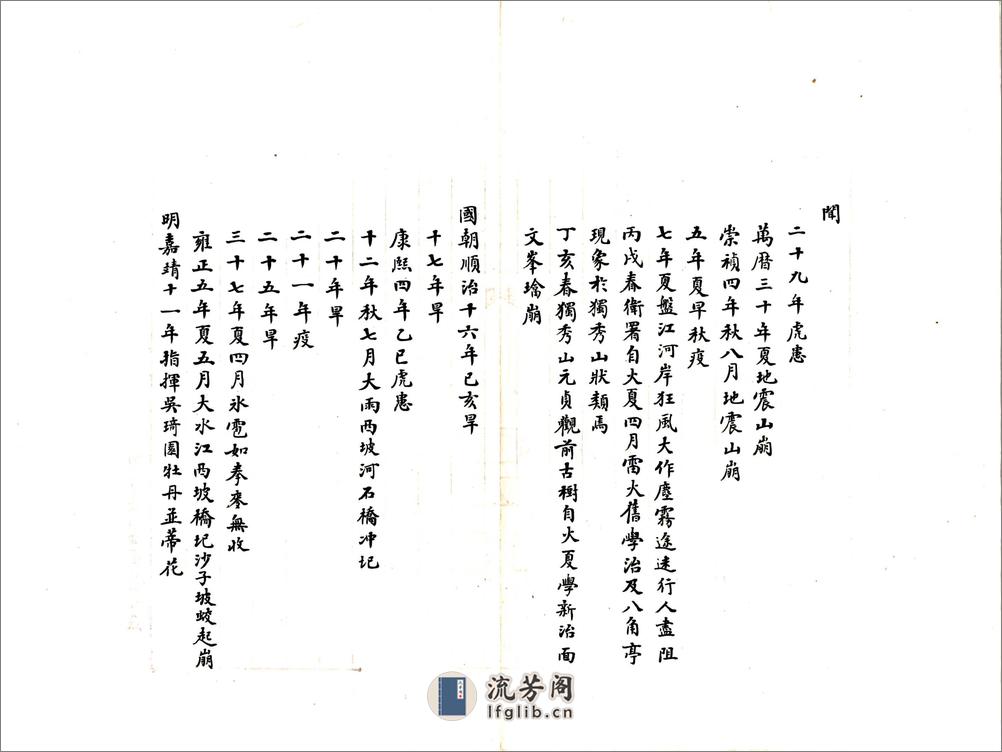 聞
二十九年虎患
萬曆三十年夏地震山崩
崇禎四年秋八月地震山崩
五年夏旱秋疫
七年夏盤江河岸狂風大作塵霧途迷行人盡阻
丙戌春衛署自火夏四月雷火舊學治及八角亭
現象於獨秀山狀類焉
丁亥春獨秀山元貞觀前古樹自火夏學新治面
文峯墖崩
國朝順治十六年己亥旱
十七年旱
康熙四年乙巳虎患
十二年秋七月大雨西坡河石橋冲圮
二十年旱
二十一年疫
二十五年旱
三十七年夏四月氷雹如拳麥無收
雍正五年夏五月大水江西坡橋圮沙子坡蛟起崩
明嘉靖十一年指揮吳琦園牡丹並蒂花
流芳阁
lfglib.cn